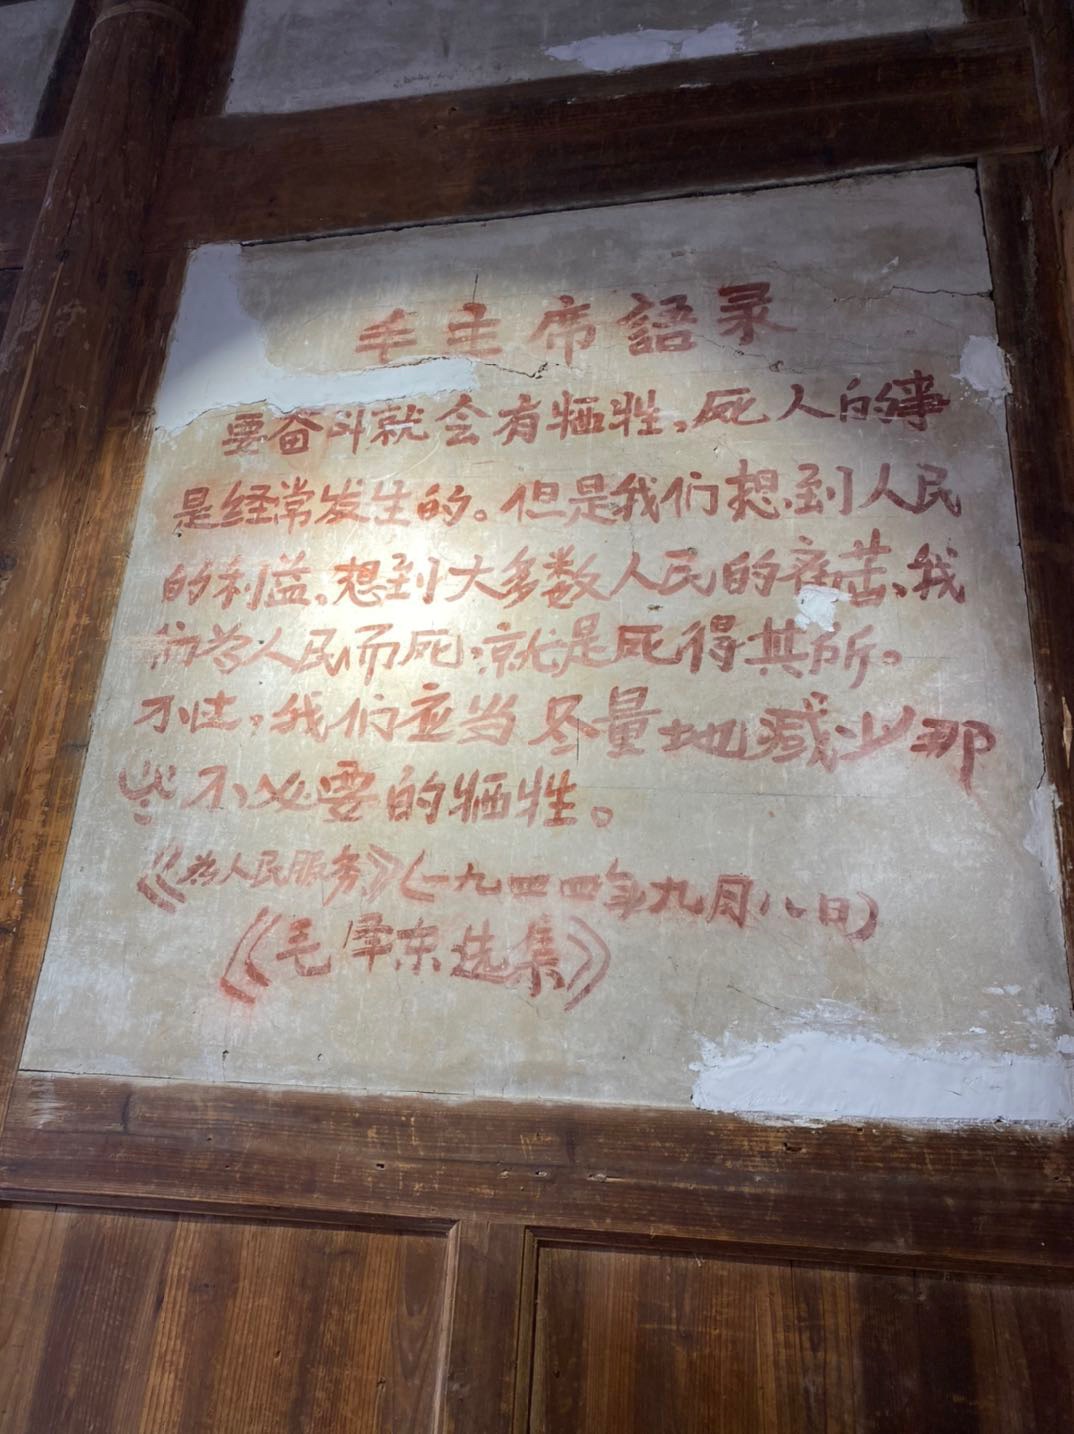 毛主席語录
要奋斗就会有牺牲,死人的事
是经常发生的。但是我们想到人民
的利益,想到大多数人民的痛苦,我
们为人民而死,就是死得其所。
不过,我们应当尽量地减少那
些不必要的牺牲。
《为人民服务》(一九四四年九月八日)
《毛泽东选集》